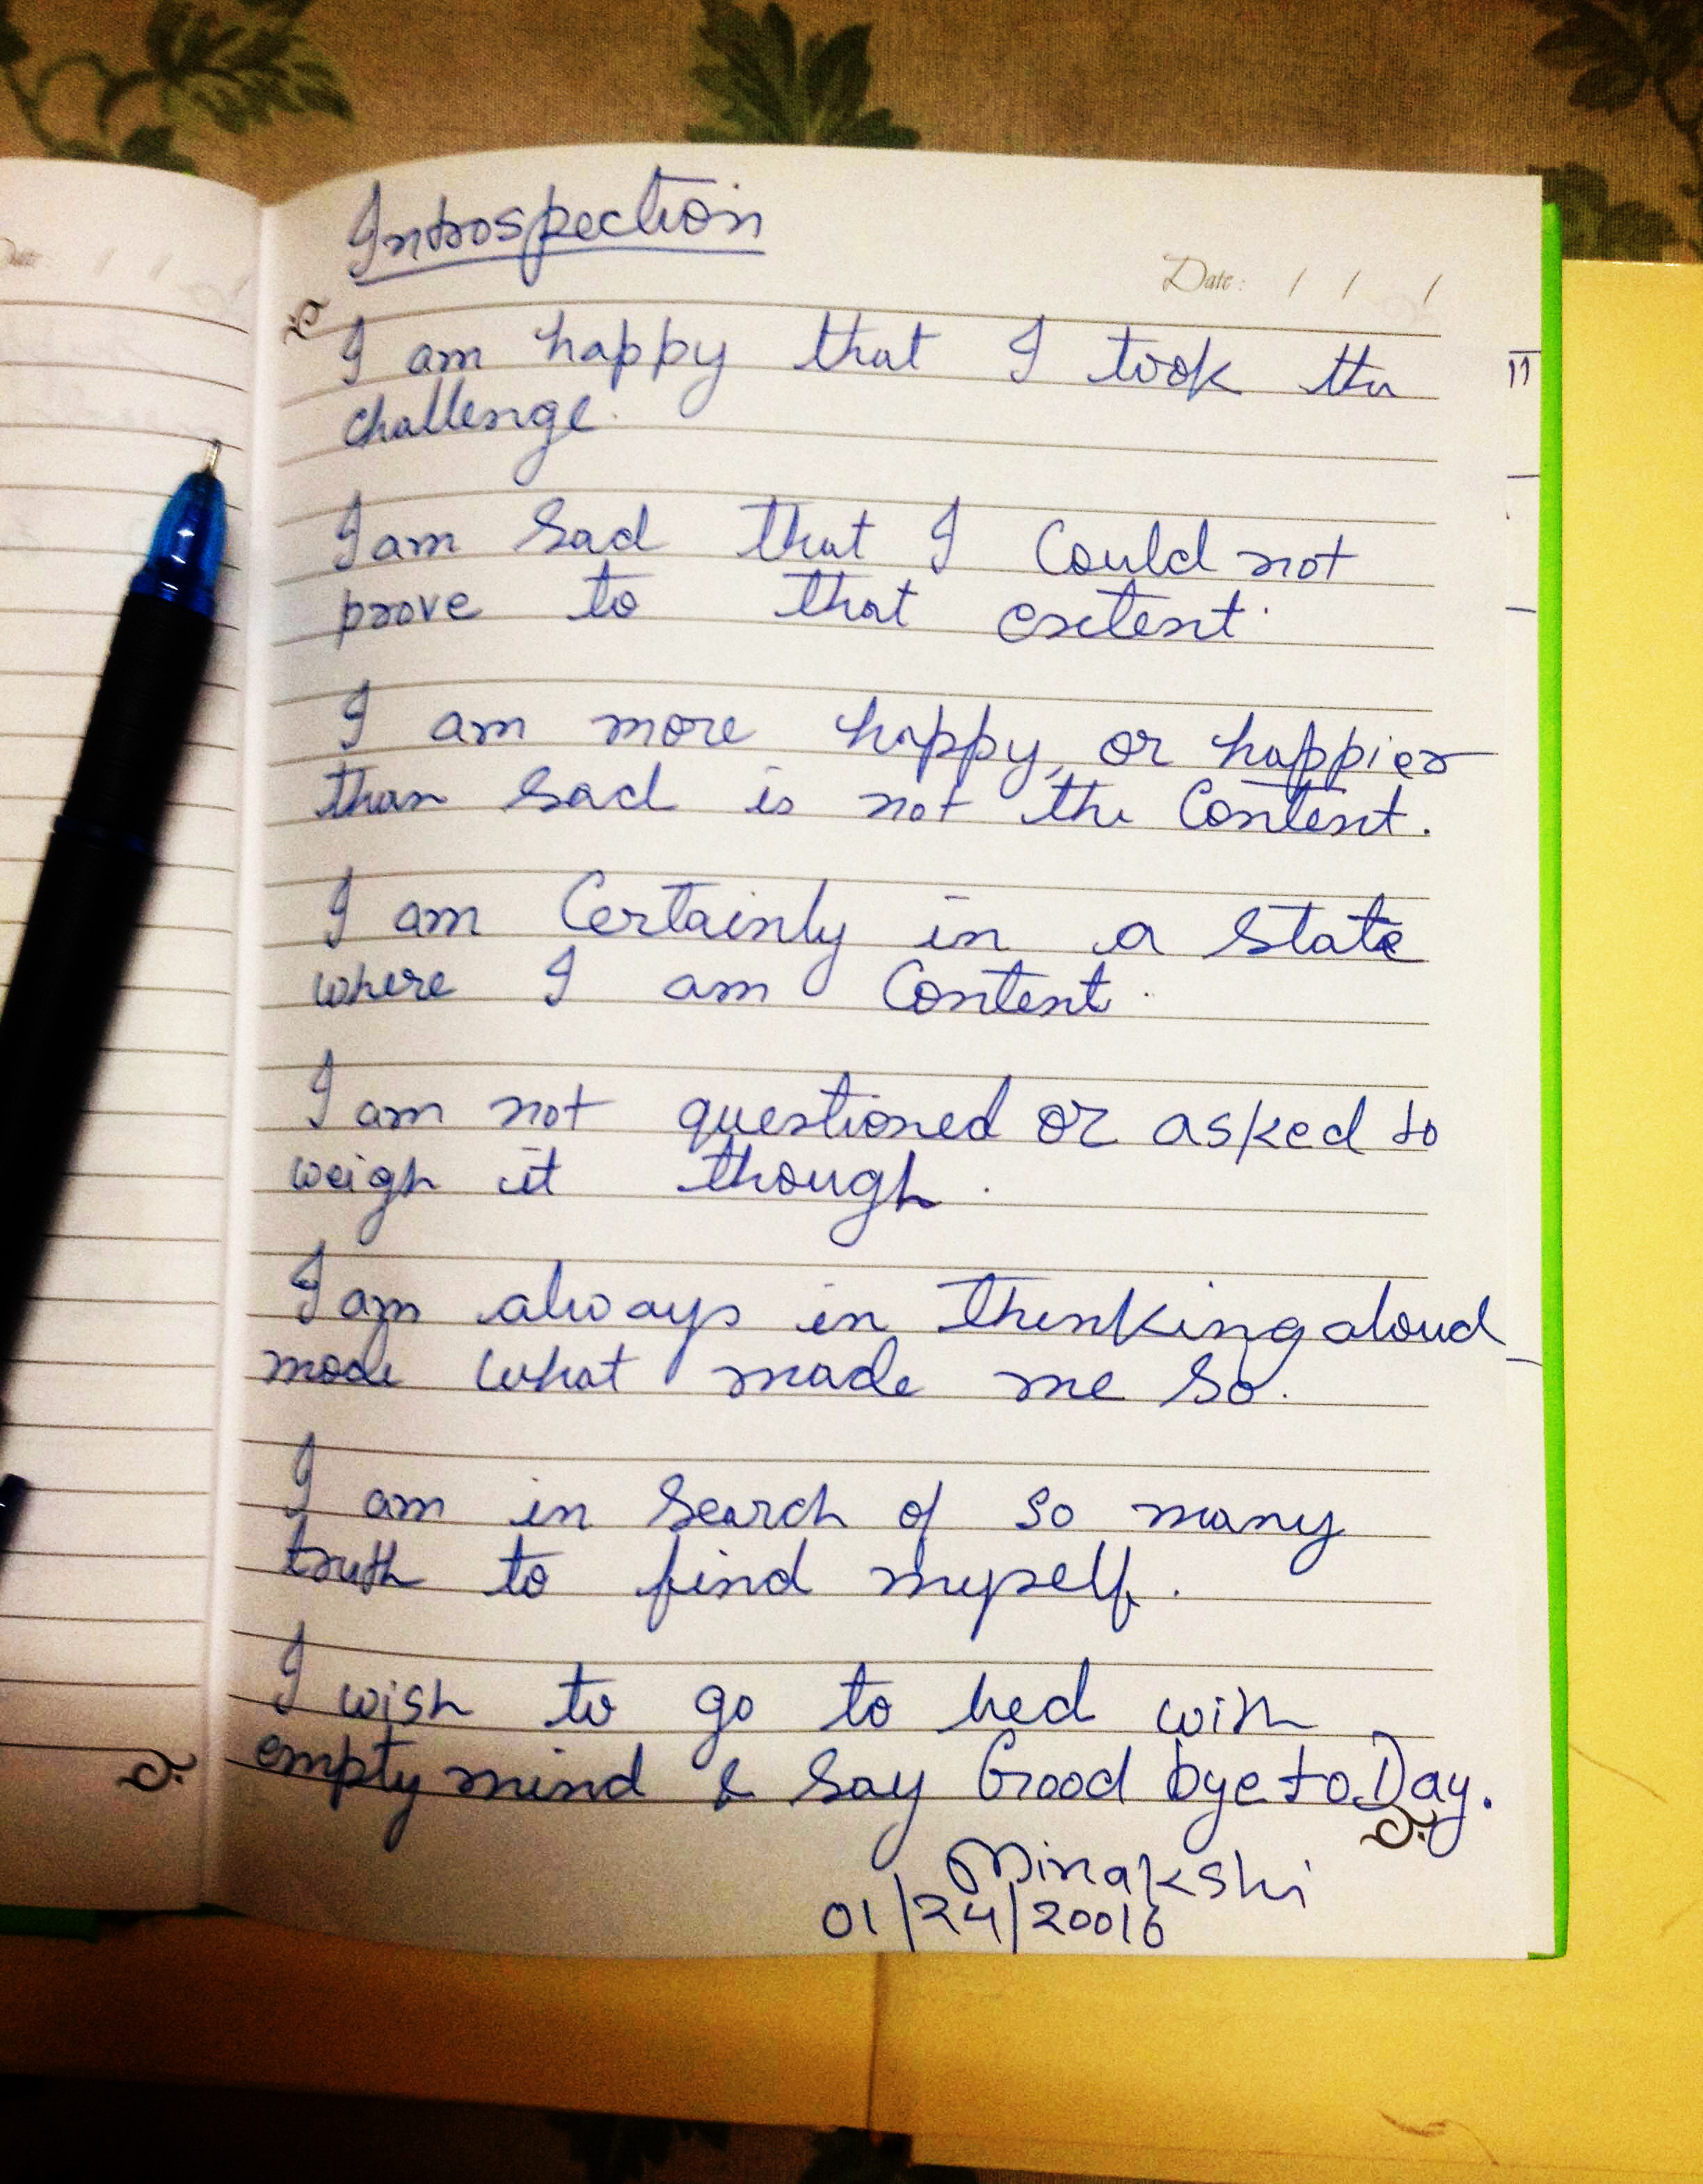 Introspection
Date: / / /
I am happy that I took the
challenge.
I am sad that I Could not
prove to that extent.
I am more happy, or happier
than sad is not the Content.
I am Certainly in a state
where I am Content.
I am not questioned or asked to
weigh it though.
I am always in thinking aloud
mode what made me so.
I am in search of so many
truth to find myself.
I wish to go to bed with
empty mind & say Good bye to Day.
Minakshi
01/24/20016